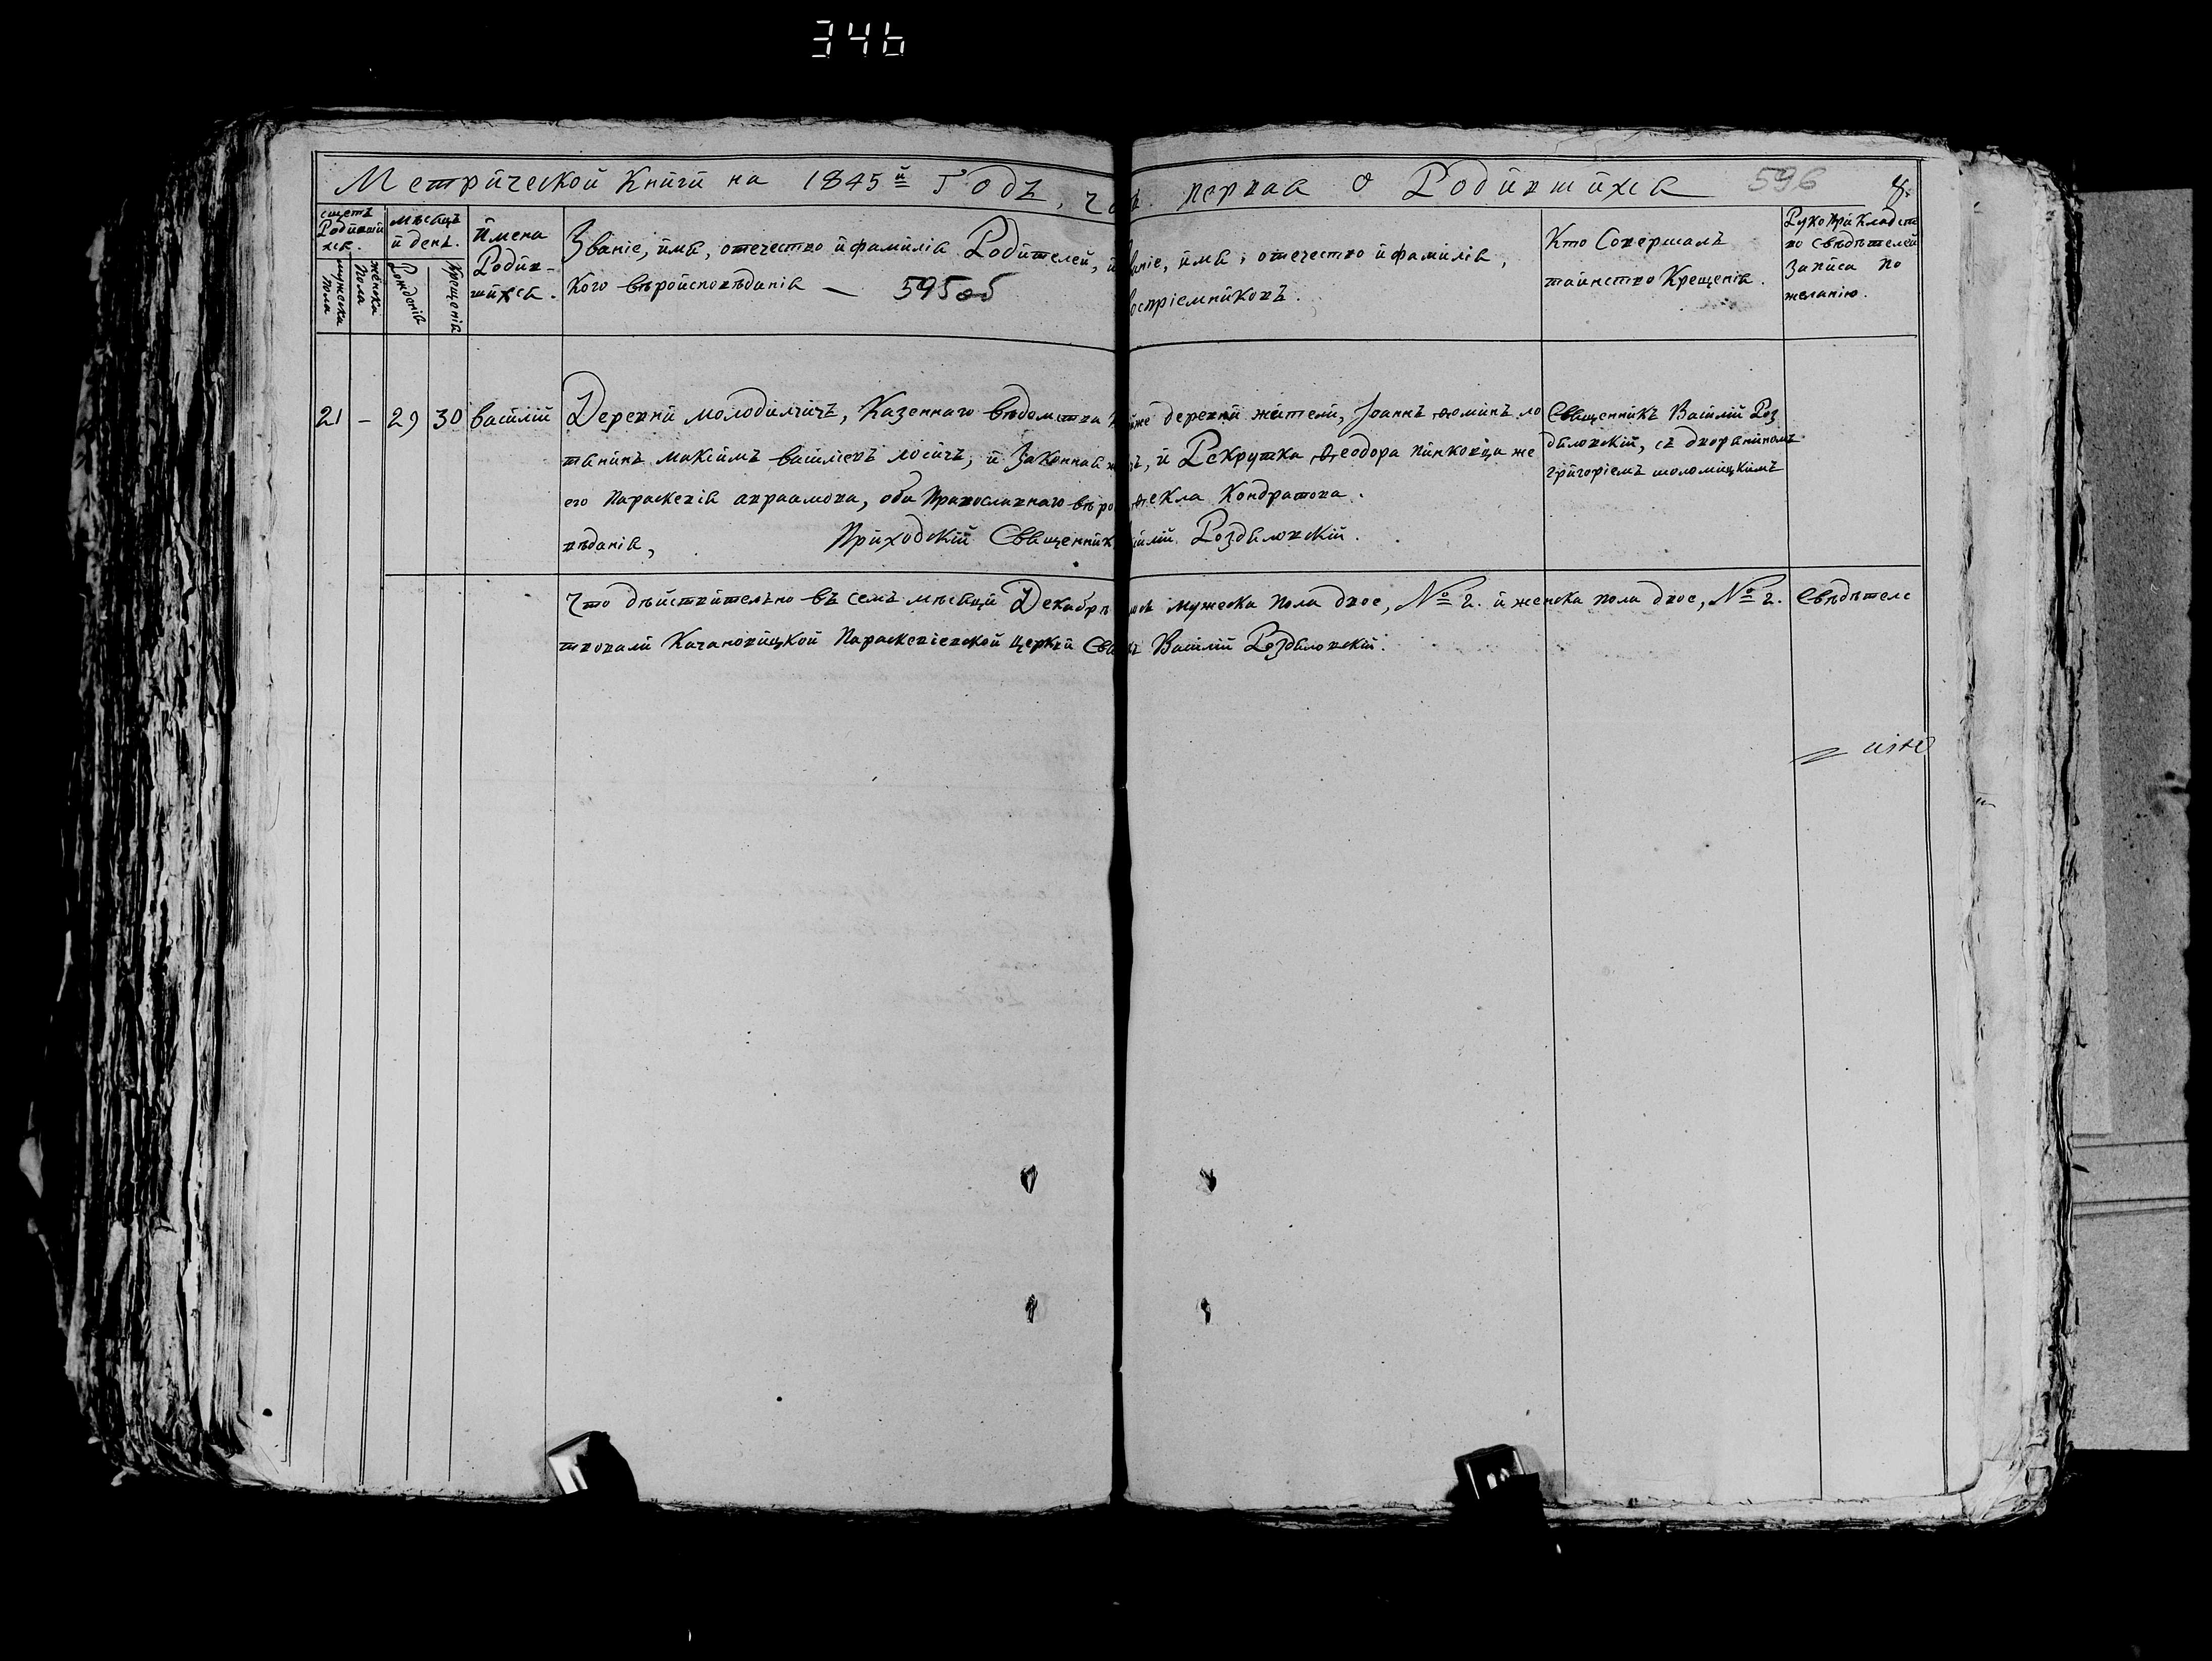 346
Метрической Книги на 1845й Годъ, ча первая о Родившихся 596 8.
счетъ Родившихся.
мужеска пола
женска пола
Мѣсяцъ и день.
Рожденія
Крещенія
Имена Родившихся.
Званіе, имя, отечество и фамилія Родителей, и
кого вѣроисповѣданія — 595 об
Званіе, имя, отечество и фамилія,
воспріемниковъ.
Кто Совершалъ
таинство Крещенія.
Рукоприкладство свѣдѣтелей
Записи по
желанію.
21 — 29 30 Василій
Деревни Молодилчичъ, Казеннаго вѣдомства
тянинъ Максимъ Васильевъ Лосичъ, и Законная
его Параскевія Авраамова, оба Православнаго вѣро
вѣданія,
Приходскій Священникъ
деревни жители, Іоаннъ Ѳоминъ ло
и Рекрутка Ѳеодора Пинковца же
Ѳекла Кондратова.
Роздяловскій.
Священникъ Василій Роз
дяловскій, съ дворяниномъ
Григоріемъ
Что дѣйствительно въ семъ мѣсяцѣ Декабрѣ мужеска пола двое, № 2. и женска пола двое, № 2. Свѣдѣтелс
твовали Качановицкой Параскевіевской Церкви Василій Роздяловскій.